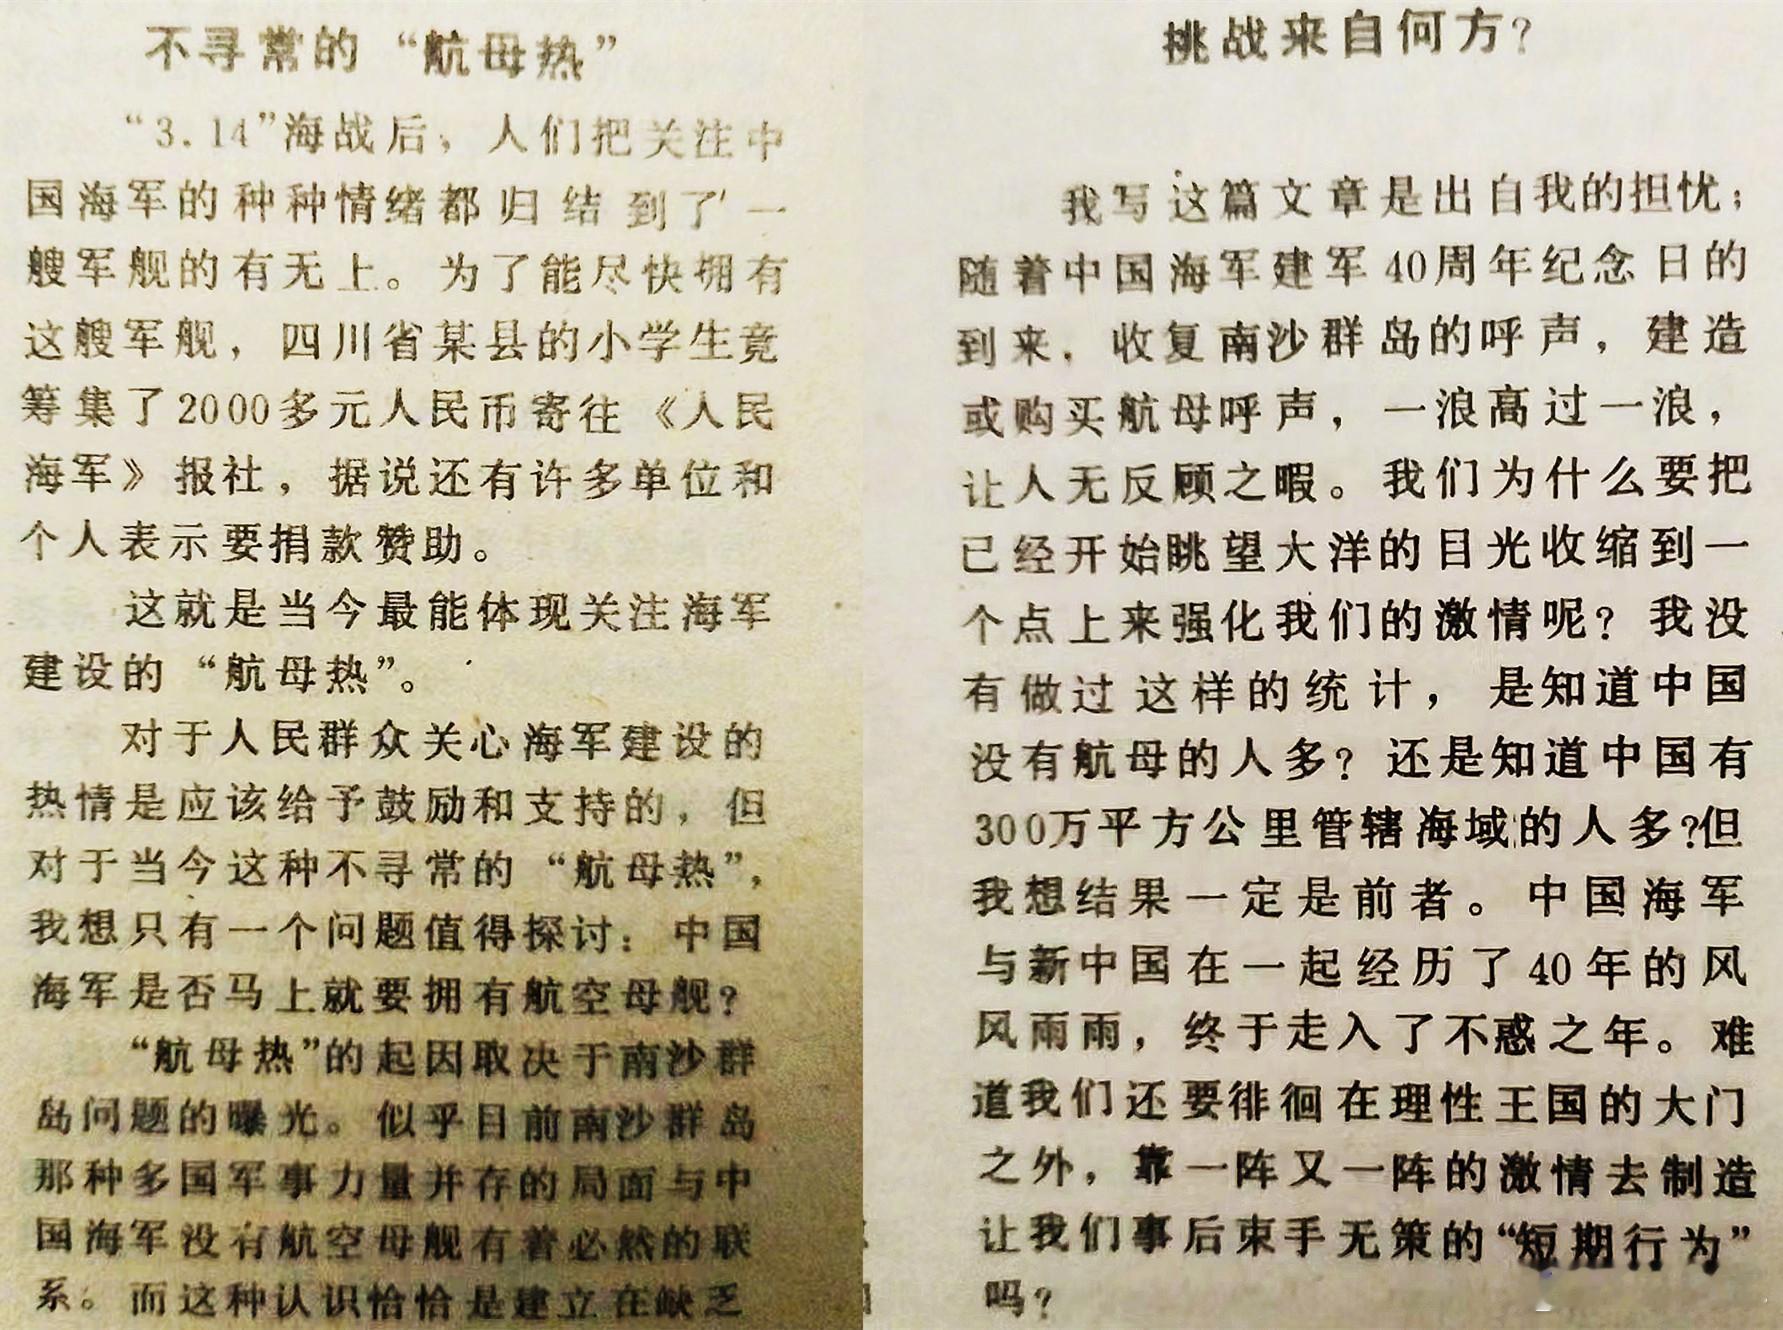 不寻常的“航母热”
“3.14”海战后，人们把关注中
国海军的种种情绪都归结到了一
艘军舰的有无上。为了能尽快拥有
这艘军舰，四川省某县的小学生竟
筹集了2000多元人民币寄往《人民
海军》报社，据说还有许多单位和
个人表示要捐款赞助。
这就是当今最能体现关注海军
建设的“航母热”。
对于人民群众关心海军建设的
热情是应该给予鼓励和支持的，但
对于当今这种不寻常的“航母热”，
我想只有一个问题值得探讨：中国
海军是否马上就要拥有航空母舰？
“航母热”的起因取决于南沙群
岛问题的曝光。似乎目前南沙群岛
那种多国军事力量并存的局面与中
国海军没有航空母舰有着必然的联
系。而这种认识恰恰是建立在缺乏
挑战来自何方？
我写这篇文章是出自我的担忧；
随着中国海军建军40周年纪念日的
到来，收复南沙群岛的呼声，建造
或购买航母呼声，一浪高过一浪，
让人无反顾之暇。我们为什么要把
已经开始眺望大洋的目光收缩到一
个点上来强化我们的激情呢？我没
有做过这样的统计，是知道中国
没有航母的人多？还是知道中国有
300万平方公里管辖海域的人多？但
我想结果一定是前者。中国海军
与新中国在一起经历了40年的风
风雨雨，终于走入了不惑之年。难
道我们还要徘徊在理性王国的大门
之外，靠一阵又一阵的激情去制造
让我们事后束手无策的“短期行为”
吗？